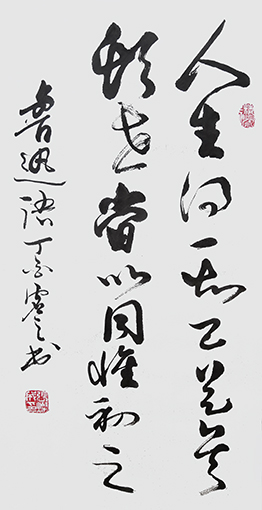 人生得一知己足矣
斯世當以同懷視之
魯迅語丁